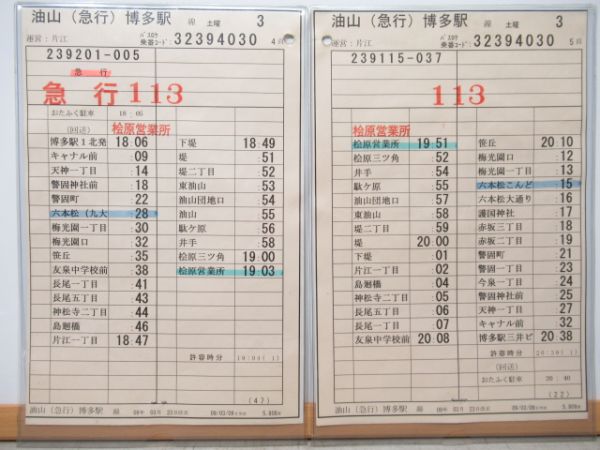 油山（急行）博多駅 線 土曜 3
運営：片江 乗番コード： 32394030 4頁
239201-005
急行
急行113
おたふく駐車 18:05
(回送) 桧原営業所
博多駅1北発 18 06
キャナル前 :09
天神一丁目 :14
警固神社前 :18
警固町 :22
六本松（九大 :28
梅光園一丁目 :30
梅光園口 :32
笹丘 :35
友泉中学校前 :38
長尾一丁目 :41
長尾五丁目 :43
神松寺二丁目 :44
島廻橋 :46
片江一丁目 18 47
下堤 18 49
堤 :51
堤二丁目 :52
東油山 :53
油山団地口 :54
油山 :55
駄ケ原 :56
井手 :58
桧原三ツ角 19 00
桧原営業所 19 03
許容時分
(47)
油山（急行）博多駅 線
油山（急行）博多駅 線 土曜 3
運営：片江 乗番コード： 32394030 5頁
239115-037
113
桧原営業所
桧原営業所 19 51
桧原三ツ角 :52
井手 :54
駄ケ原 :55
油山団地口 :57
東油山 :58
堤二丁目 :59
堤 20 00
下堤 :01
片江一丁目 :02
島廻橋 :04
神松寺二丁目 :05
長尾五丁目 :06
長尾一丁目 :07
友泉中学校前 20 08
笹丘 20 10
梅光園口 :12
梅光園一丁目 :13
六本松こんど :15
六本松大通り :16
護国神社 :17
赤坂三丁目 :18
赤坂二丁目 :19
警固町 :21
警固一丁目 :23
今泉一丁目 :24
警固神社前 :25
天神一丁目 :27
キャナル前 :32
博多駅三井ビ 20 38
許容時分
(回送)
おたふく駐車 20:40
(22)
油山（急行）博多駅 線